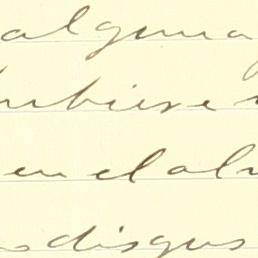 alguna
ubiese
en el al
disgus